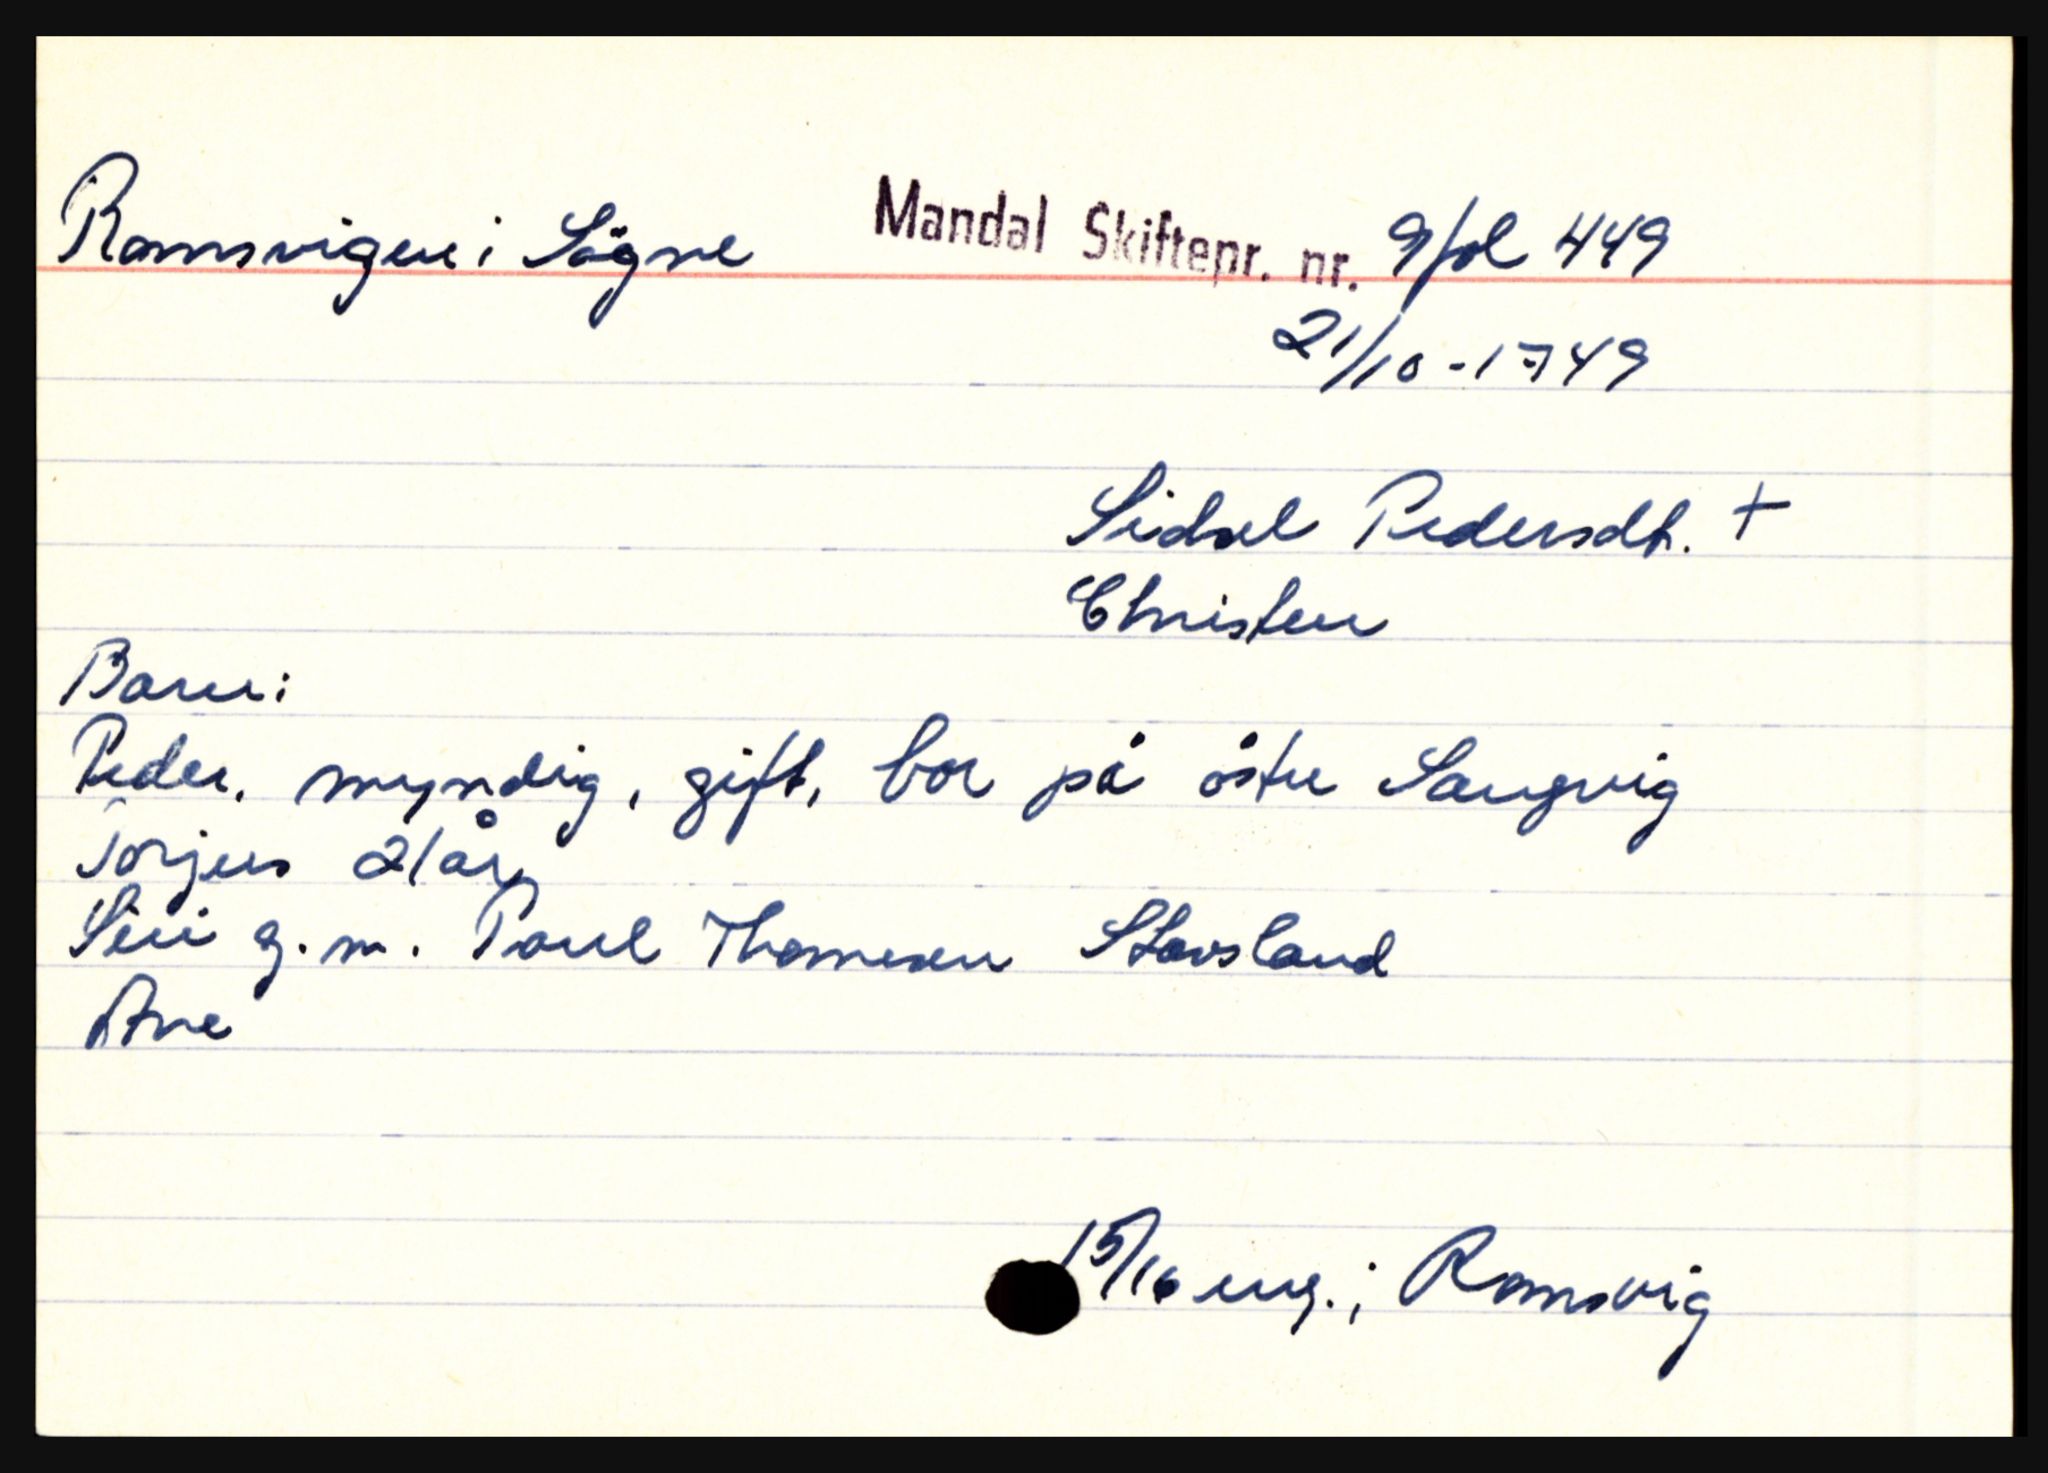 Romsvigen i Sögne Mandal Skiftepr. nr. 9 fol 449
21/10-1749
Sidsel Pedersdt. +
Christen
Barn:
Peder, myndig, gift, bor på östre Sangvig
Torjus 21 år,
Siri g.m. Poul Thomesen Stovsland
Ane
15/16 eng. i Romsvig